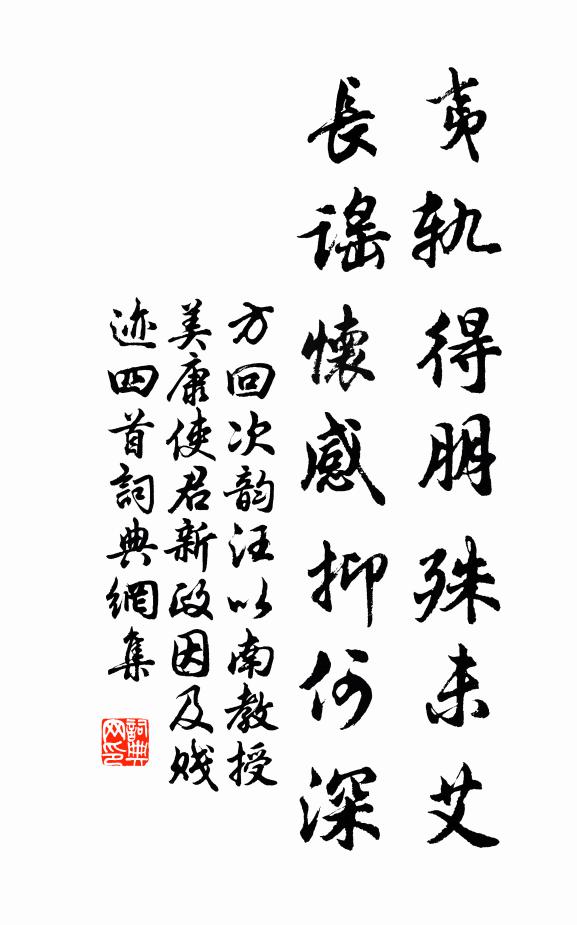 夷轨得朋殊未艾
長謡懷感抑何深
方回次韵汪以南教授
美康使君新政因及贱
迹四首詞典網集
詞典网印